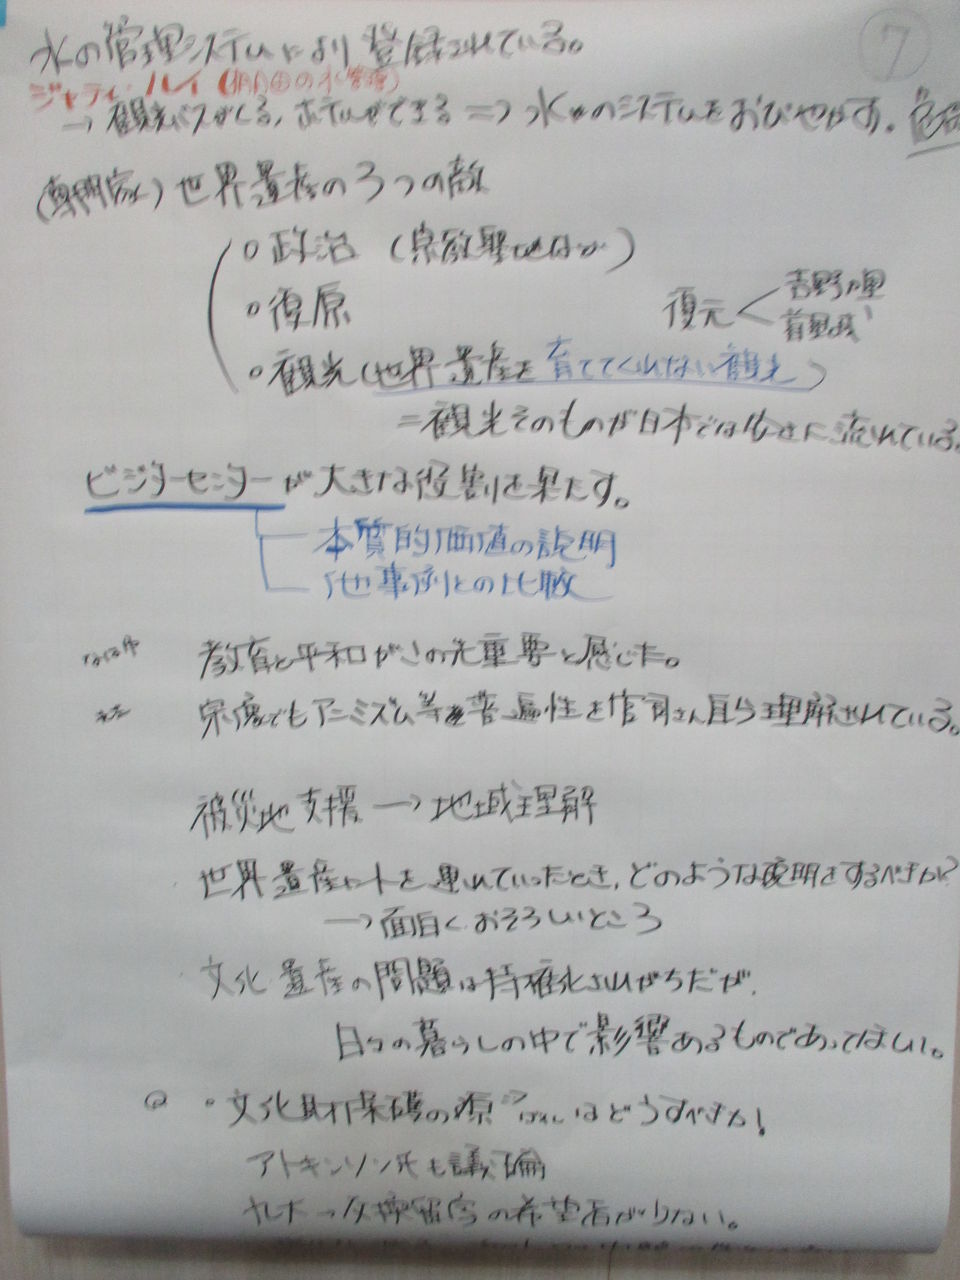 7
水の管理システムにより登録されている。
ジャティ・ルイ(棚田の水管理)
→ 観光バスがくる、ホテルができる ⇒ 水のシステムをおびやかす。危機
(専門家) 世界遺産の3つの敵
・政治 (宗教聖地ほか)
・復原
復元 < 吉野ヶ里
首里城
・観光 (世界遺産を育ててくれない観光)
=観光そのものが日本では安きに流れている。
ビジターセンターが大きな役割を果たす。
本質的価値の説明
他事例との比較
教育と平和がこの先重要と感じた。
宗像でもアニミズム等普遍性を宮司さん自ら理解されている。
被災地支援 → 地域理解
世界遺産ルートを連れていったとき、どのような説明をするべきか?
→ 面白くおそろしいところ
文化遺産の問題は特権化されがちだが、
日々の暮らしの中で影響あるものであってほしい。
Q ・文化財保護の源 はどうすべきか!
アトキンソン氏も議論
交換留学の希望者が少ない。